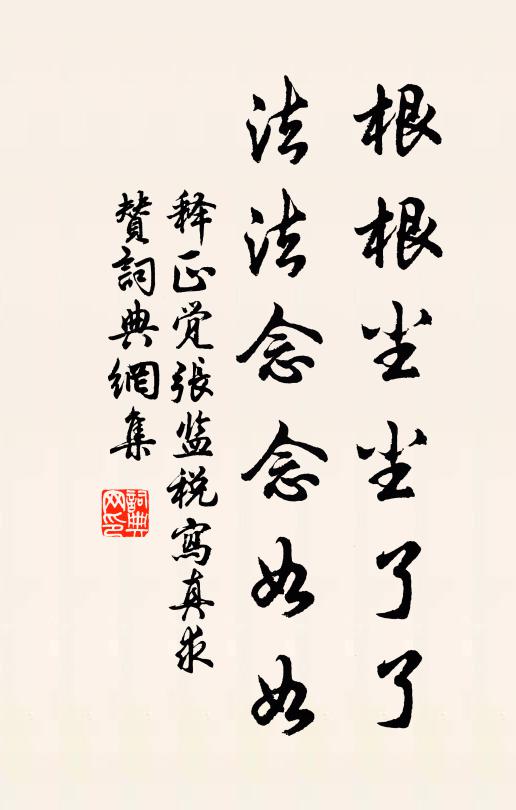 根根尘尘了了
法法念念如如
释正觉张监税寫真求
赞詞典網集
詞典网印